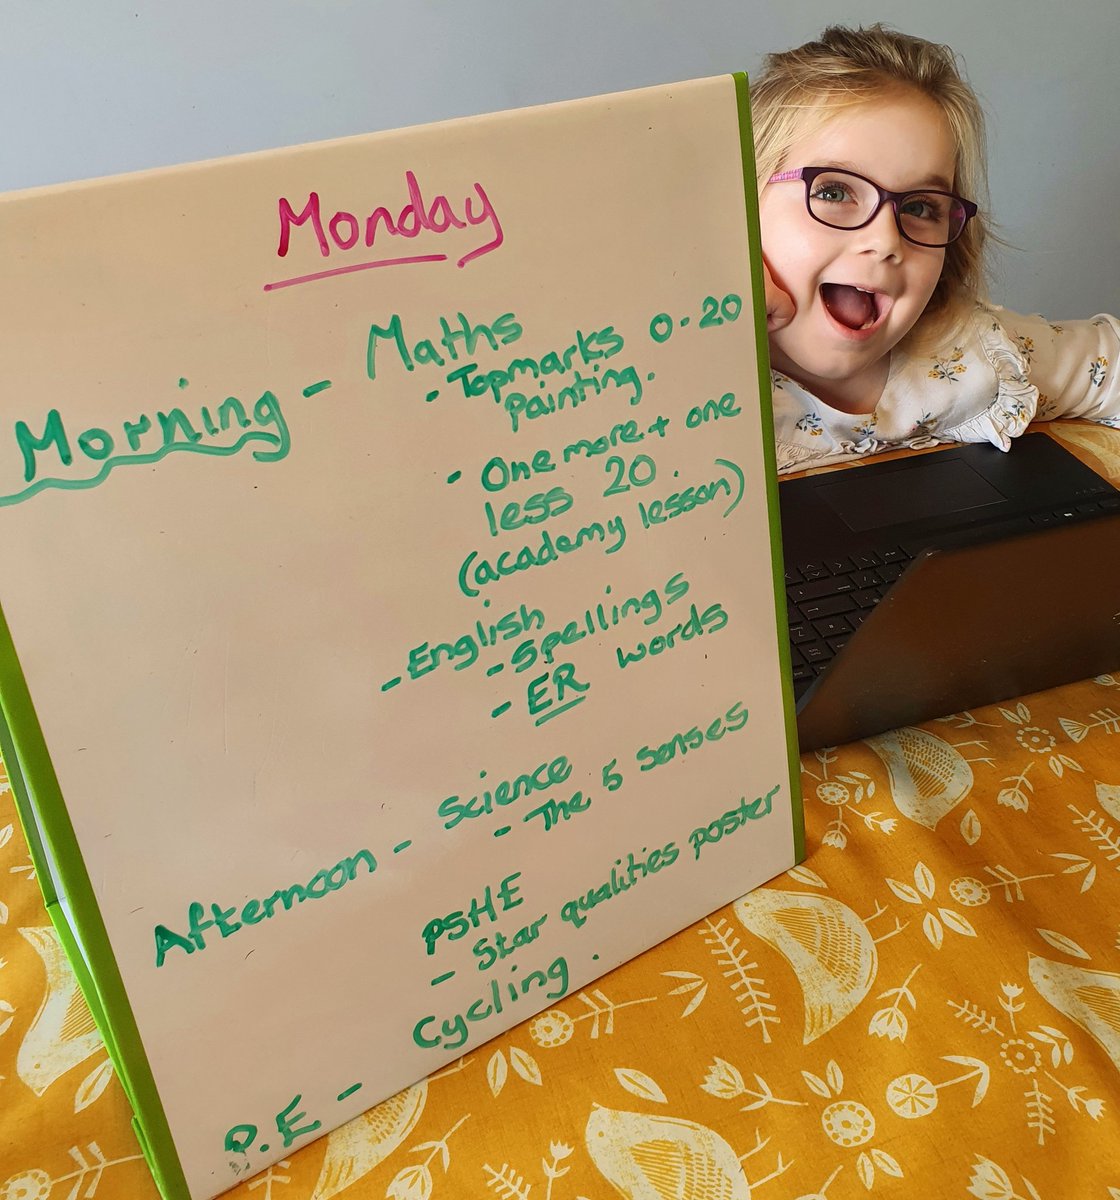 Monday
Morning - Maths
- Topmarks 0-20
painting.
- One more + one
less 20.
(academy lesson)
- English
- Spellings
- ER words
Afternoon - Science
- The 5 senses
PSHE
- Star qualities poster
P.E - Cycling.